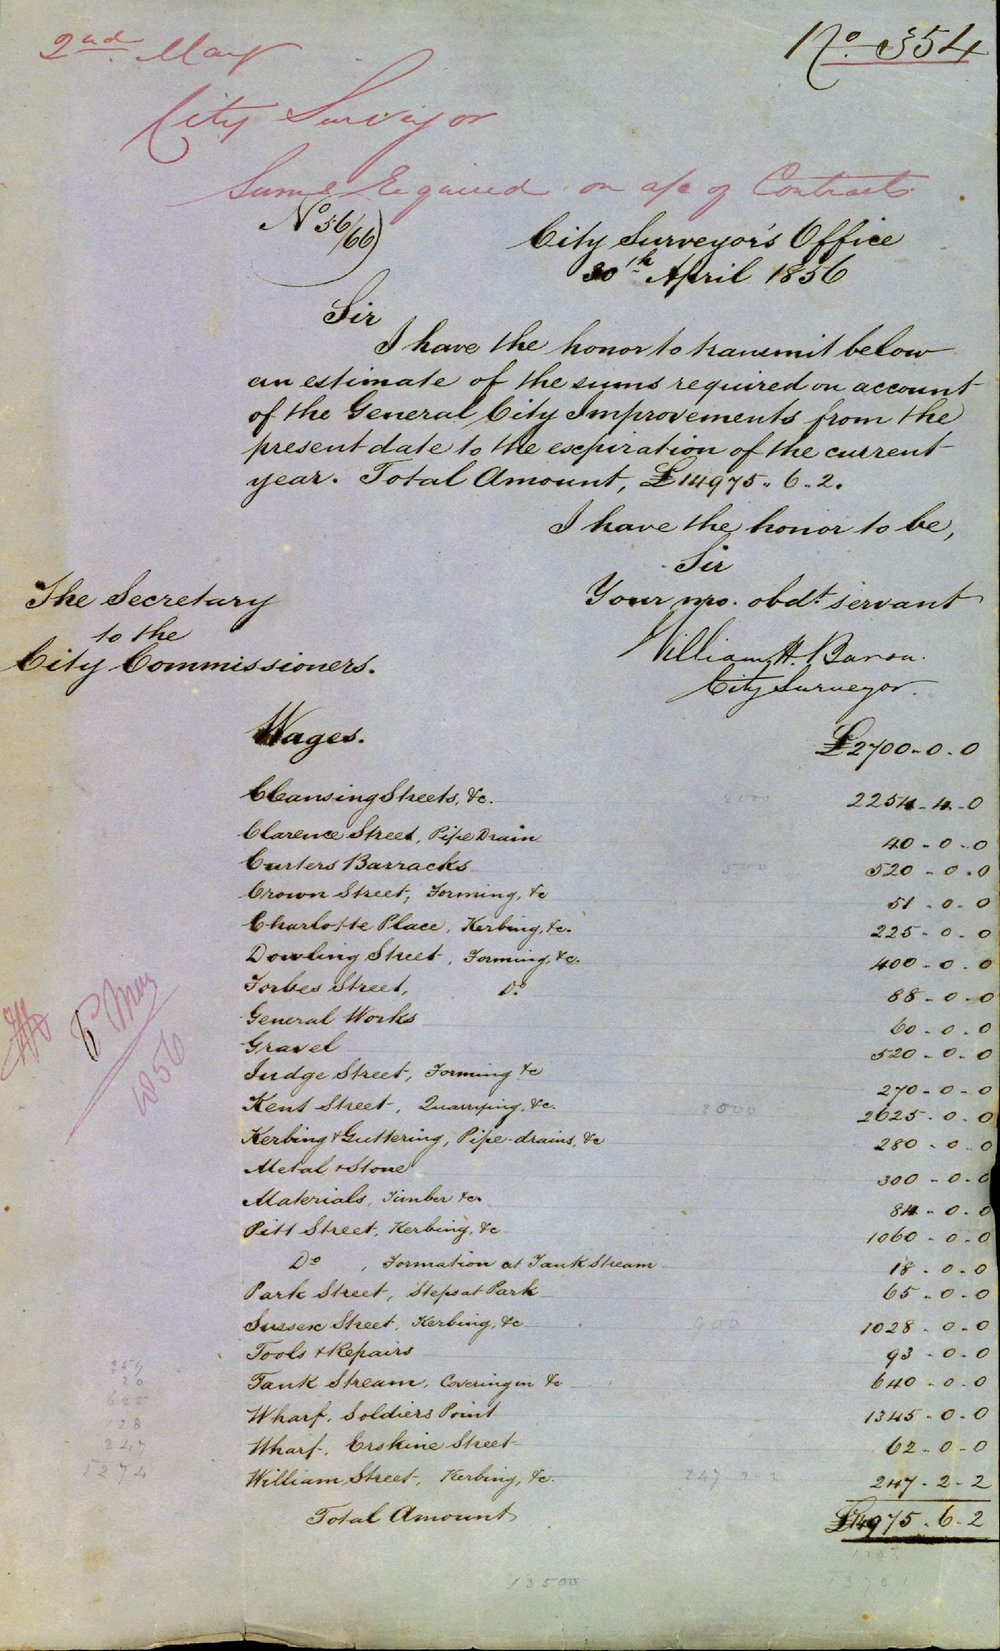 2nd May
No. 354
City Surveyor
Sums Required on a/c of Contracts
No 56/66)
City Surveyor's Office
30th April 1856
Sir
I have the honor to transmit below
an estimate of the sums required on account
of the General City Improvements from the
present date to the expiration of the current
year. Total Amount, £14975.. 6.. 2.
I have the honor to be,
Sir
Your mo. obdt servant
William H. Baron.
City Surveyor.
The Secretary
to the
City Commissioners.
Wages. £2700.. 0. 0
Cleansing Streets, &c. 2254.. 4.. 0
Clarence Street, Pipe Drain 40 - 0 - 0
Carters Barracks 520 - 0 - 0
Crown Street, Forming, &c 51 - 0 - 0
Charlotte Place, Kerbing, &c. 225 - 0 - 0
Dowling Street, Forming, &c. 400 - 0 - 0
Forbes Street, Do 88 - 0 - 0
General Works 60 - 0 - 0
Gravel 520 - 0 - 0
Judge Street, Forming &c 270 - 0 - 0
Kent Street, Quarrying, &c. 2000 2625 - 0 - 0
Kerbing & Guttering, Pipe-drains, &c 280 - 0 - 0
Metal & Stone 300 - 0 - 0
Materials, Timber &c. 84 - 0 - 0
Pitt Street, Kerbing, &c 1060 - 0 - 0
Do , Formation at Tank Stream 18 - 0 - 0
Park Street, Steps at Park 65 - 0 - 0
Sussex Street, Kerbing, &c 900 1028 - 0 - 0
Tools & Repairs 93 - 0 - 0
Tank Stream, Covering in &c 640 - 0 - 0
Wharf, Soldiers Point 1345 - 0 - 0
Wharf, Erskine Street 62 - 0 - 0
William Street, Kerbing, &c. 247-2-2 247 - 2 - 2
Total Amount £14975 - 6 - 2
6 May
1856
247
1274
13500